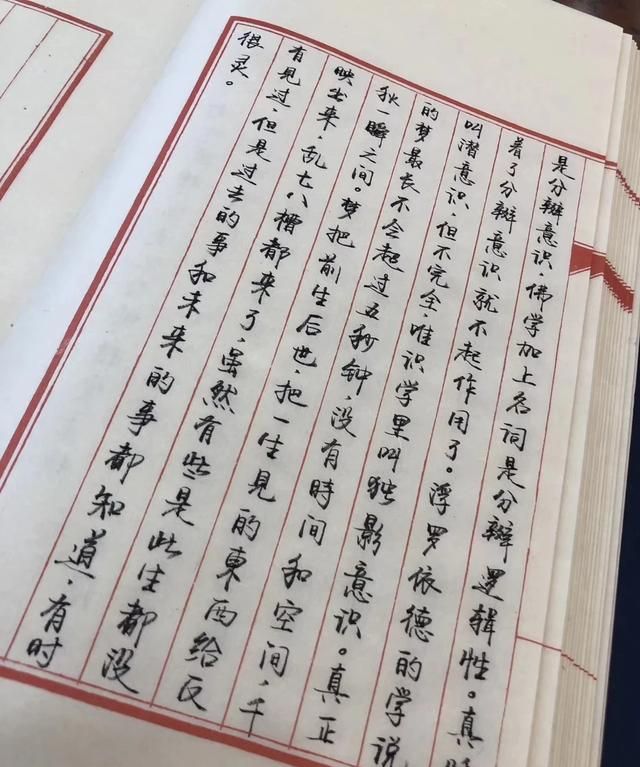 是分辨意识，佛学加上名词是分辨逻辑性。真
着了分辨意识就不起作用了。浮罗依德的学说
叫潜意识，但不完全，唯识学里叫独影意识。真正
的梦最长不会超过五秒钟，没有時间和空间，千
秋一瞬之间。梦把前生后世，把一生见的東西给反
映出来，乱七八槽都来了，虽然有些是此生都没
有见过，但是过去的事和未来的事都知道，有时
很灵。